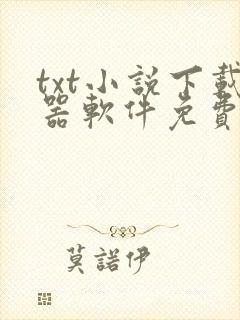 txt小説下載
器軟件免費
莫諾伊